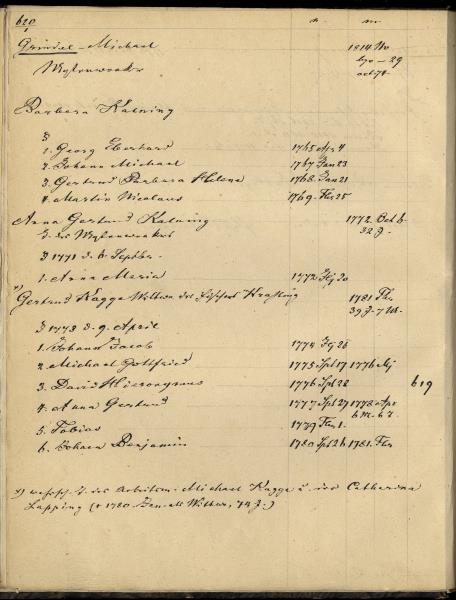 620
Grindel Michael 1814 No
70 - 29
Barbara Kalning
1. Georg Eberhard 1765 Apr 4
2. Johann Michael 1767 Jan 23
3. Gertrud Barbara Helena 1768 Jan 21
4. Martin Nicolaus 1769 25
Anna Gertrud Kalning 1772 Oct 6
32 J.
1771 d. 6 Septbr.
1. Anna Maria 1772 20
Gertrud Kagge Wittwe des Krafting 1781
39 J. 7 M.
1773 d. 9. April
1. Johann Jacob 1774 26
2. Michael Gottfried 1775 Spt 17 1776
3. David Hieronymus 1776 Spt 28 619
4. Anna Gertrud 1777 Spt 27 1778 Apr
6 M. 6 T.
5. Tobias 1779 1.
6. Johann Benjamin 1780 Spt 26 1781.
des Arbeitsm. Michael Kagge u. der Catharina
Lapping († 1780 Jan. alt Wittwe, 74 J.)